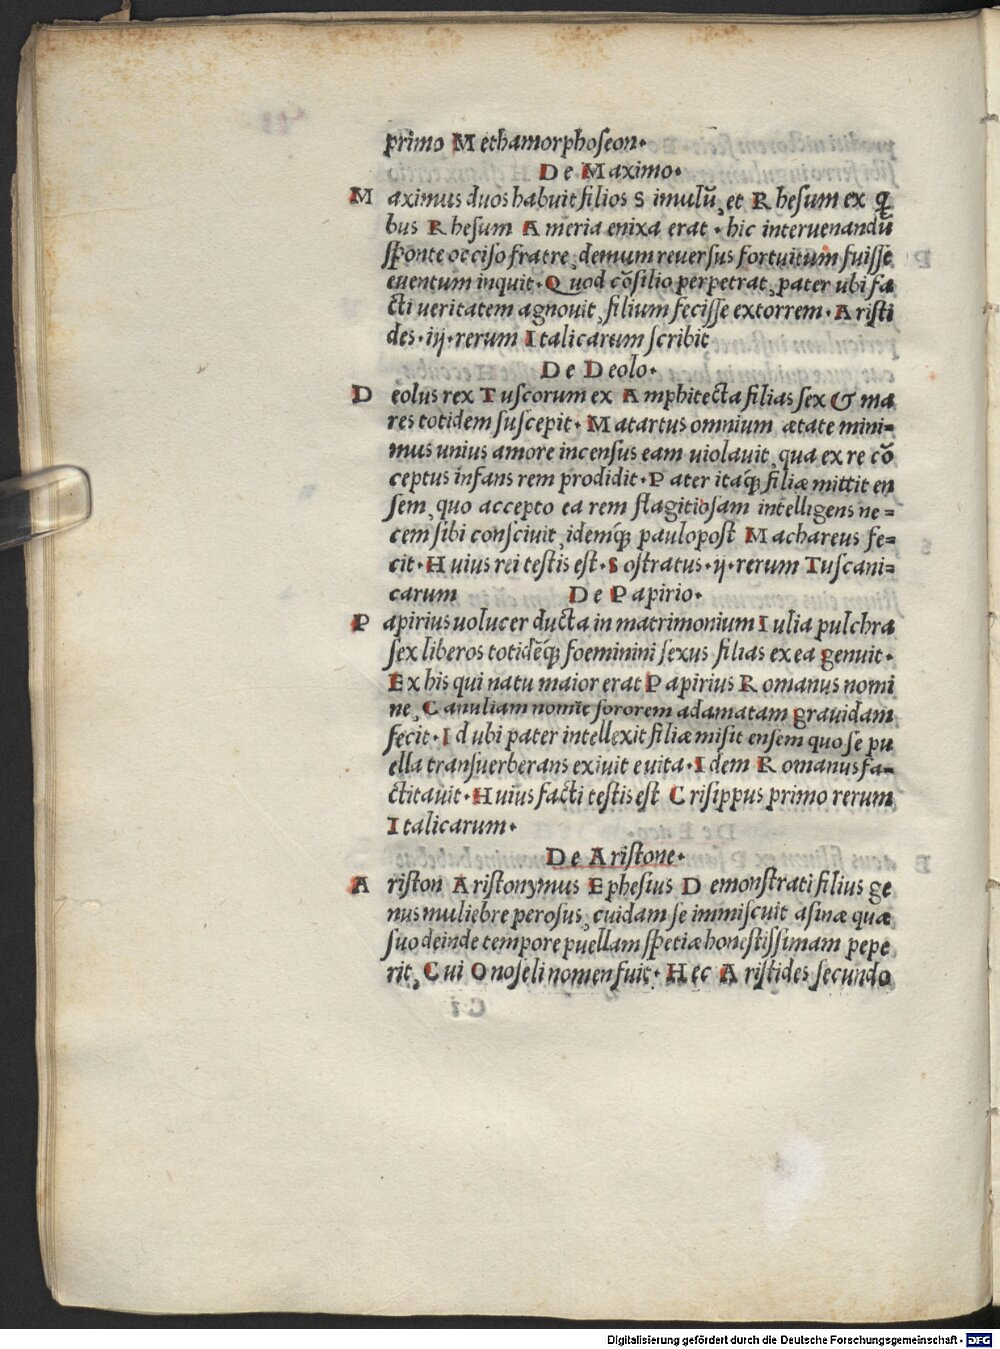 primo Methamorphoseon·
De Maximo·
Maximus duos habuit filios Simulū, et Rhesum ex q̄
bus Rhesum Ameria enixa erat· hic interuenandū
sponte occiso fratre, demum reuersus fortuitum fuisse
euentum inquit· Quod cōsilio perpetrat, pater ubi fa
cti veritatem agnouit, filium fecisse extorrem· Aristi
des· iij· rerum Italicarum scribit
De Deolo·
Deolus rex Tuscorum ex Amphitecta filias sex & ma
res totidem suscepit· Matartus omnium ætate mini=
mus unius amore incensus eam uiolauit, qua ex re cō
ceptus infans rem prodidit· Pater itaq; filiæ mittit en
sem, quo accepto ea rem flagitiosam intelligens ne=
cem sibi consciuit, idemq; paulopost Machareus fe=
cit· Huius rei testis est· Sostratus· ij· rerum Tuscani=
carum De Papirio·
Papirius uolucer ducta in matrimonium Iulia pulchra
sex liberos totidēq; foeminini sexus filias ex ea genuit·
Ex his qui natu maior erat Papirius Romanus nomi
ne, Canuliam nomīe sororem adamatam grauidam
fecit· Id ubi pater intellexit filiæ misit ensem quo se pu
ella transuerberans exiuit e uita· Idem Romanus fa=
ctitauit· Huius facti testis est Crisippus primo rerum
Italicarum·
De Aristone·
Ariston Aristonymus Ephesius Demonstrati filius ge
nus muliebre perosus, cuidam se immiscuit asinæ quæ
suo deinde tempore puellam spetiæ honestissimam pepe
rit, Cui Onoseli nomen fuit· Hec Aristides secundo
Digitalisierung gefördert durch die Deutsche Forschungsgemeinschaft - DFG